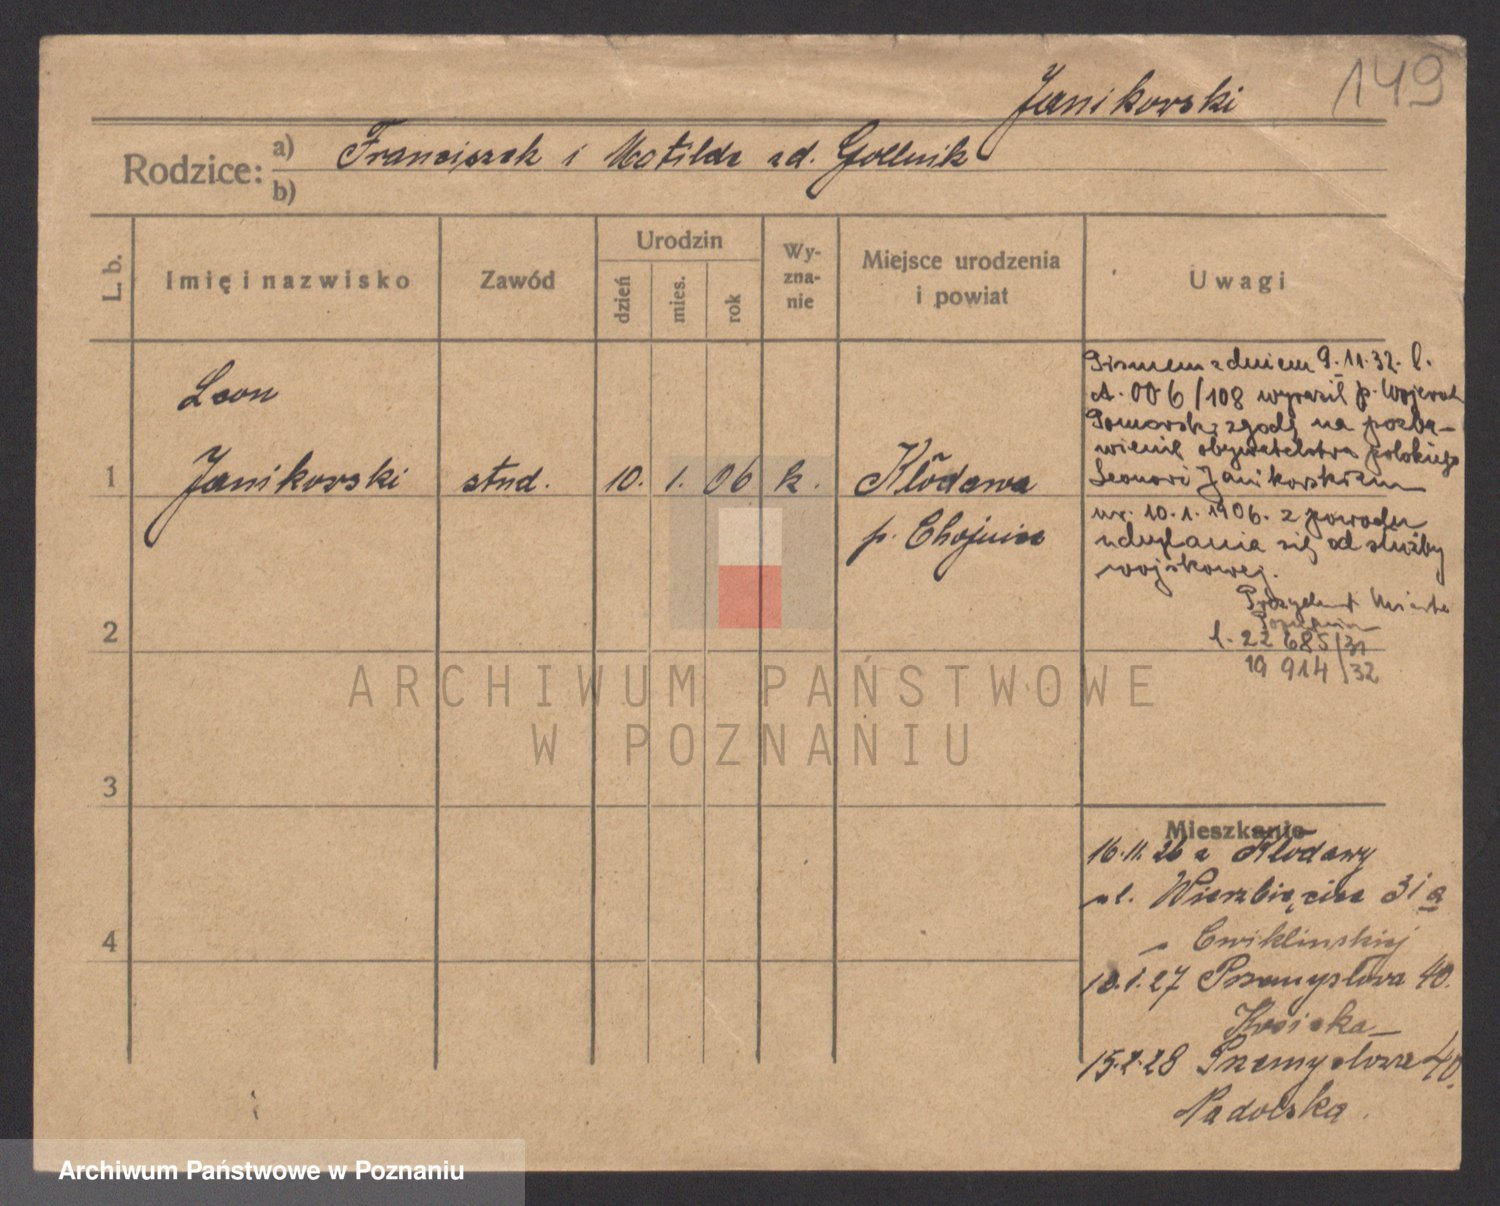 149
Janikowski
Rodzice: a) Franciszek i Matilda zd. Gollnik
b)
L. b.
Imię i nazwisko
Zawód
Urodzin
dzień
mies.
rok
Wy-
zna-
nie
Miejsce urodzenia
i powiat
Uwagi
Leon
1 Janikowski stud. 10. 1. 06 k. Kłodawa
p. Chojnice
Pismem z dniem 9.11.32. l.
A. 00 6/108 wyraził p. Wojewoda
Pomorski zgodę na pozba-
wienie obywatelstwa polskiego
Leonowi Janikowskiemu
ur. 10.1.1906. z powodu
uchylania się od służby
wojskowej.
Prezydent Miasta
Poznania
l. 22 685/31
19 914/32
2
3
4
Mieszkanie
16.11.26 z Kłodawy
ul. Wierzbięcice 31a
Ćwiklińskiej
10.1.27 Przemysłowa 40.
15.2.28 Przemysłowa 40.
Nadolska.
ARCHIWUM PAŃSTWOWE
W POZNANIU
Archiwum Państwowe w Poznaniu